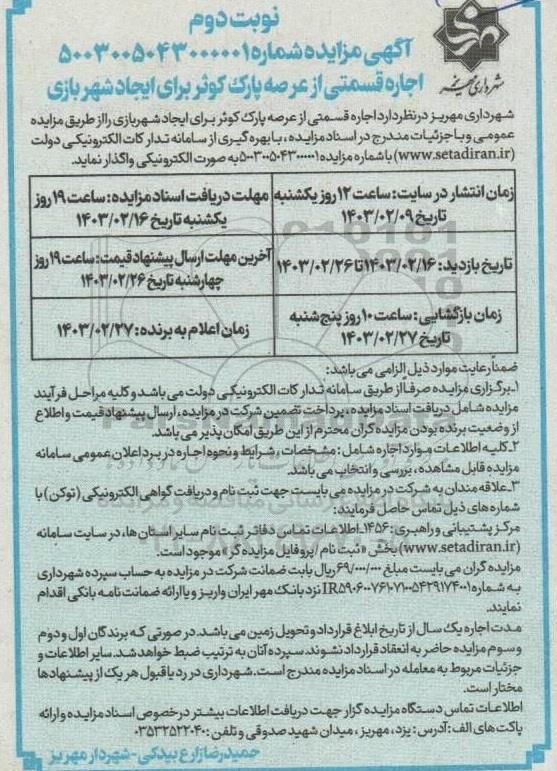 نوبت دوم
آگهی مزایده شماره ۵۰۰۳۰۰۵۰۴۳۰۰۰۰۰۱
اجاره قسمتی از عرصه پارک کوثر برای ایجاد شهر بازی
شهرداری مهریز
شهرداری مهریز در نظر دارد اجاره قسمتی از عرصه پارک کوثر برای ایجاد شهربازی را از طریق مزایده
عمومی و با جزئیات مندرج در اسناد مزایده، با بهره گیری از سامانه تدارکات الکترونیکی دولت
(www.setadiran.ir) با شماره مزایده ۵۰۰۳۰۰۵۰۴۳۰۰۰۰۰۱ به صورت الکترونیکی واگذار نماید.
زمان انتشار در سایت: ساعت ۱۲ روز یکشنبه
تاریخ ۱۴۰۳/۰۲/۰۹
مهلت دریافت اسناد مزایده: ساعت ۱۹ روز
یکشنبه تاریخ ۱۴۰۳/۰۲/۱۶
تاریخ بازدید: ۱۴۰۳/۰۲/۱۶ تا ۱۴۰۳/۰۲/۲۶
آخرین مهلت ارسال پیشنهاد قیمت: ساعت ۱۹ روز
چهارشنبه تاریخ ۱۴۰۳/۰۲/۲۶
زمان بازگشایی: ساعت ۱۰ روز پنج شنبه
تاریخ ۱۴۰۳/۰۲/۲۷
زمان اعلام به برنده: ۱۴۰۳/۰۲/۲۷
ضمناً رعایت موارد ذیل الزامی می باشد:
۱ـ برگزاری مزایده صرفاً از طریق سامانه تدارکات الکترونیکی دولت می باشد و کلیه مراحل فرآیند
مزایده شامل دریافت اسناد مزایده، پرداخت تضمین شرکت در مزایده، ارسال پیشنهاد قیمت و اطلاع
از وضعیت برنده بودن مزایده گران محترم از این طریق امکان پذیر می باشد.
۲ـ کلیه اطلاعات موارد اجاره شامل: مشخصات، شرایط و نحوه اجاره در برد اعلان عمومی سامانه
مزایده قابل مشاهده، بررسی و انتخاب می باشد.
۳ـ علاقه مندان به شرکت در مزایده می بایست جهت ثبت نام و دریافت گواهی الکترونیکی (توکن) با
شماره های ذیل تماس حاصل فرمایند:
مرکز پشتیبانی و راهبری: ۱۴۵۶ـ اطلاعات تماس دفاتر ثبت نام سایر استان ها، در سایت سامانه
(www.setadiran.ir) بخش «ثبت نام / پروفایل مزایده گر» موجود است.
مزایده گران می بایست مبلغ ۶۹/۰۰۰/۰۰۰ ریال بابت ضمانت شرکت در مزایده به حساب سپرده شهرداری
به شماره IR۵۹۰۶۰۰۷۶۱۰۷۱۰۰۵۴۲۹۱۷۴۰۰۱ نزد بانک مهر ایران واریز و یا ارائه ضمانت نامه بانکی اقدام
نمایند.
مدت اجاره یک سال از تاریخ ابلاغ قرارداد و تحویل زمین می باشد. در صورتی که برندگان اول و دوم
و سوم مزایده حاضر به انعقاد قرارداد نشوند، سپرده آنان به ترتیب ضبط خواهد شد. سایر اطلاعات و
جزئیات مربوط به معامله در اسناد مزایده مندرج است. شهرداری در رد یا قبول هر یک از پیشنهادها
مختار است.
اطلاعات تماس دستگاه مزایده گزار جهت دریافت اطلاعات بیشتر در خصوص اسناد مزایده و ارائه
پاکت های الف: آدرس: یزد، مهریز، میدان شهید صدوقی و تلفن: ۰۳۵۳۲۵۲۲۰۴۰
حمیدرضا زارع بیدکی - شهردار مهریز